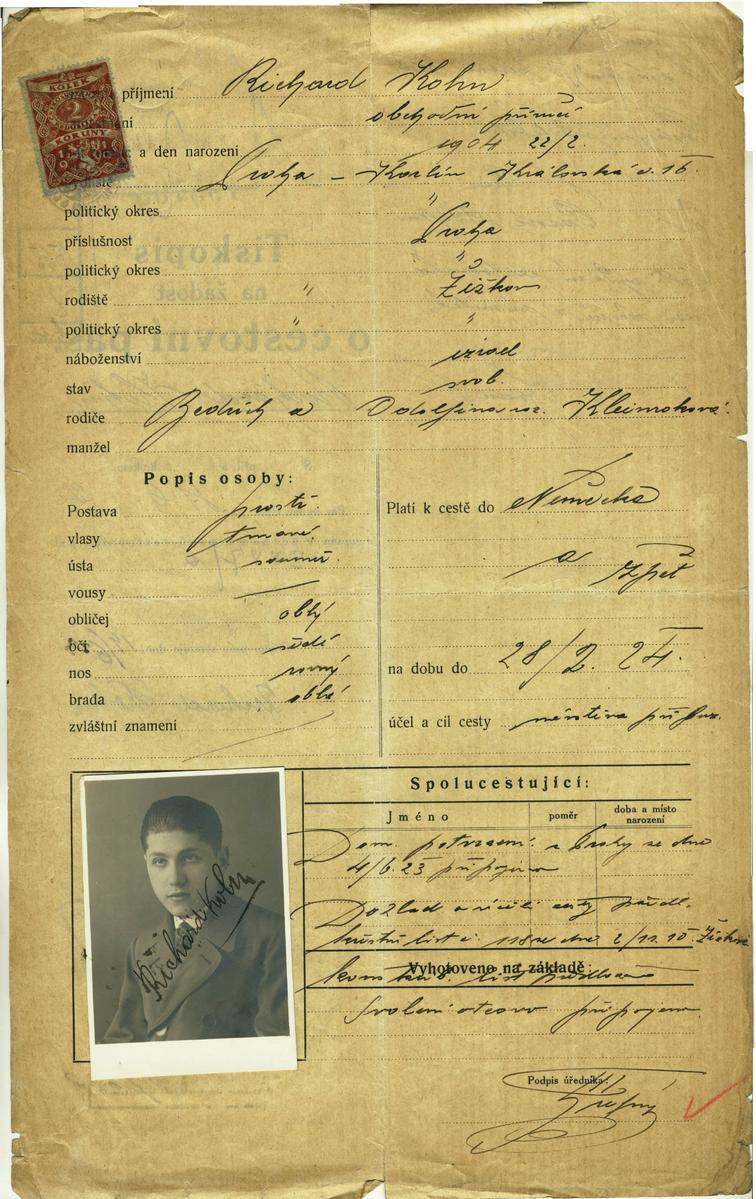 KOLEK
2
KORUNY
příjmení Richard Kohn
obchodní příručí
a den narození 1904 22/2.
Praha – Karlín Královská č. 16
politický okres "
příslušnost Praha
politický okres "
rodiště " Žižkov
politický okres " "
náboženství israel
stav svob.
rodiče Bedřich a Adolfina roz.
manžel
Popis osoby:
Postava prostř.
vlasy tmavé
ústa souměr.
vousy —
obličej oblý
oči šedé
nos rovný
brada oblá
zvláštní znamení
Platí k cestě do Německa
a zpět
na dobu do 28/2. 24.
účel a cíl cesty návštěva příbuz.
Richard Kohn
Spolucestující:
Jméno poměr doba a místo narození
Dom. potvrzení z Prahy ze dne
4/6. 23 připojeno
Doklad o účeli cesty předl.
křestní list č. 118 ze dne 2/11. 10 Žižkov
Vyhotoveno na základě:
Svolení otcovo připojeno
Podpis úředníka:
Tiskopis
na žádost
o cestovní pas